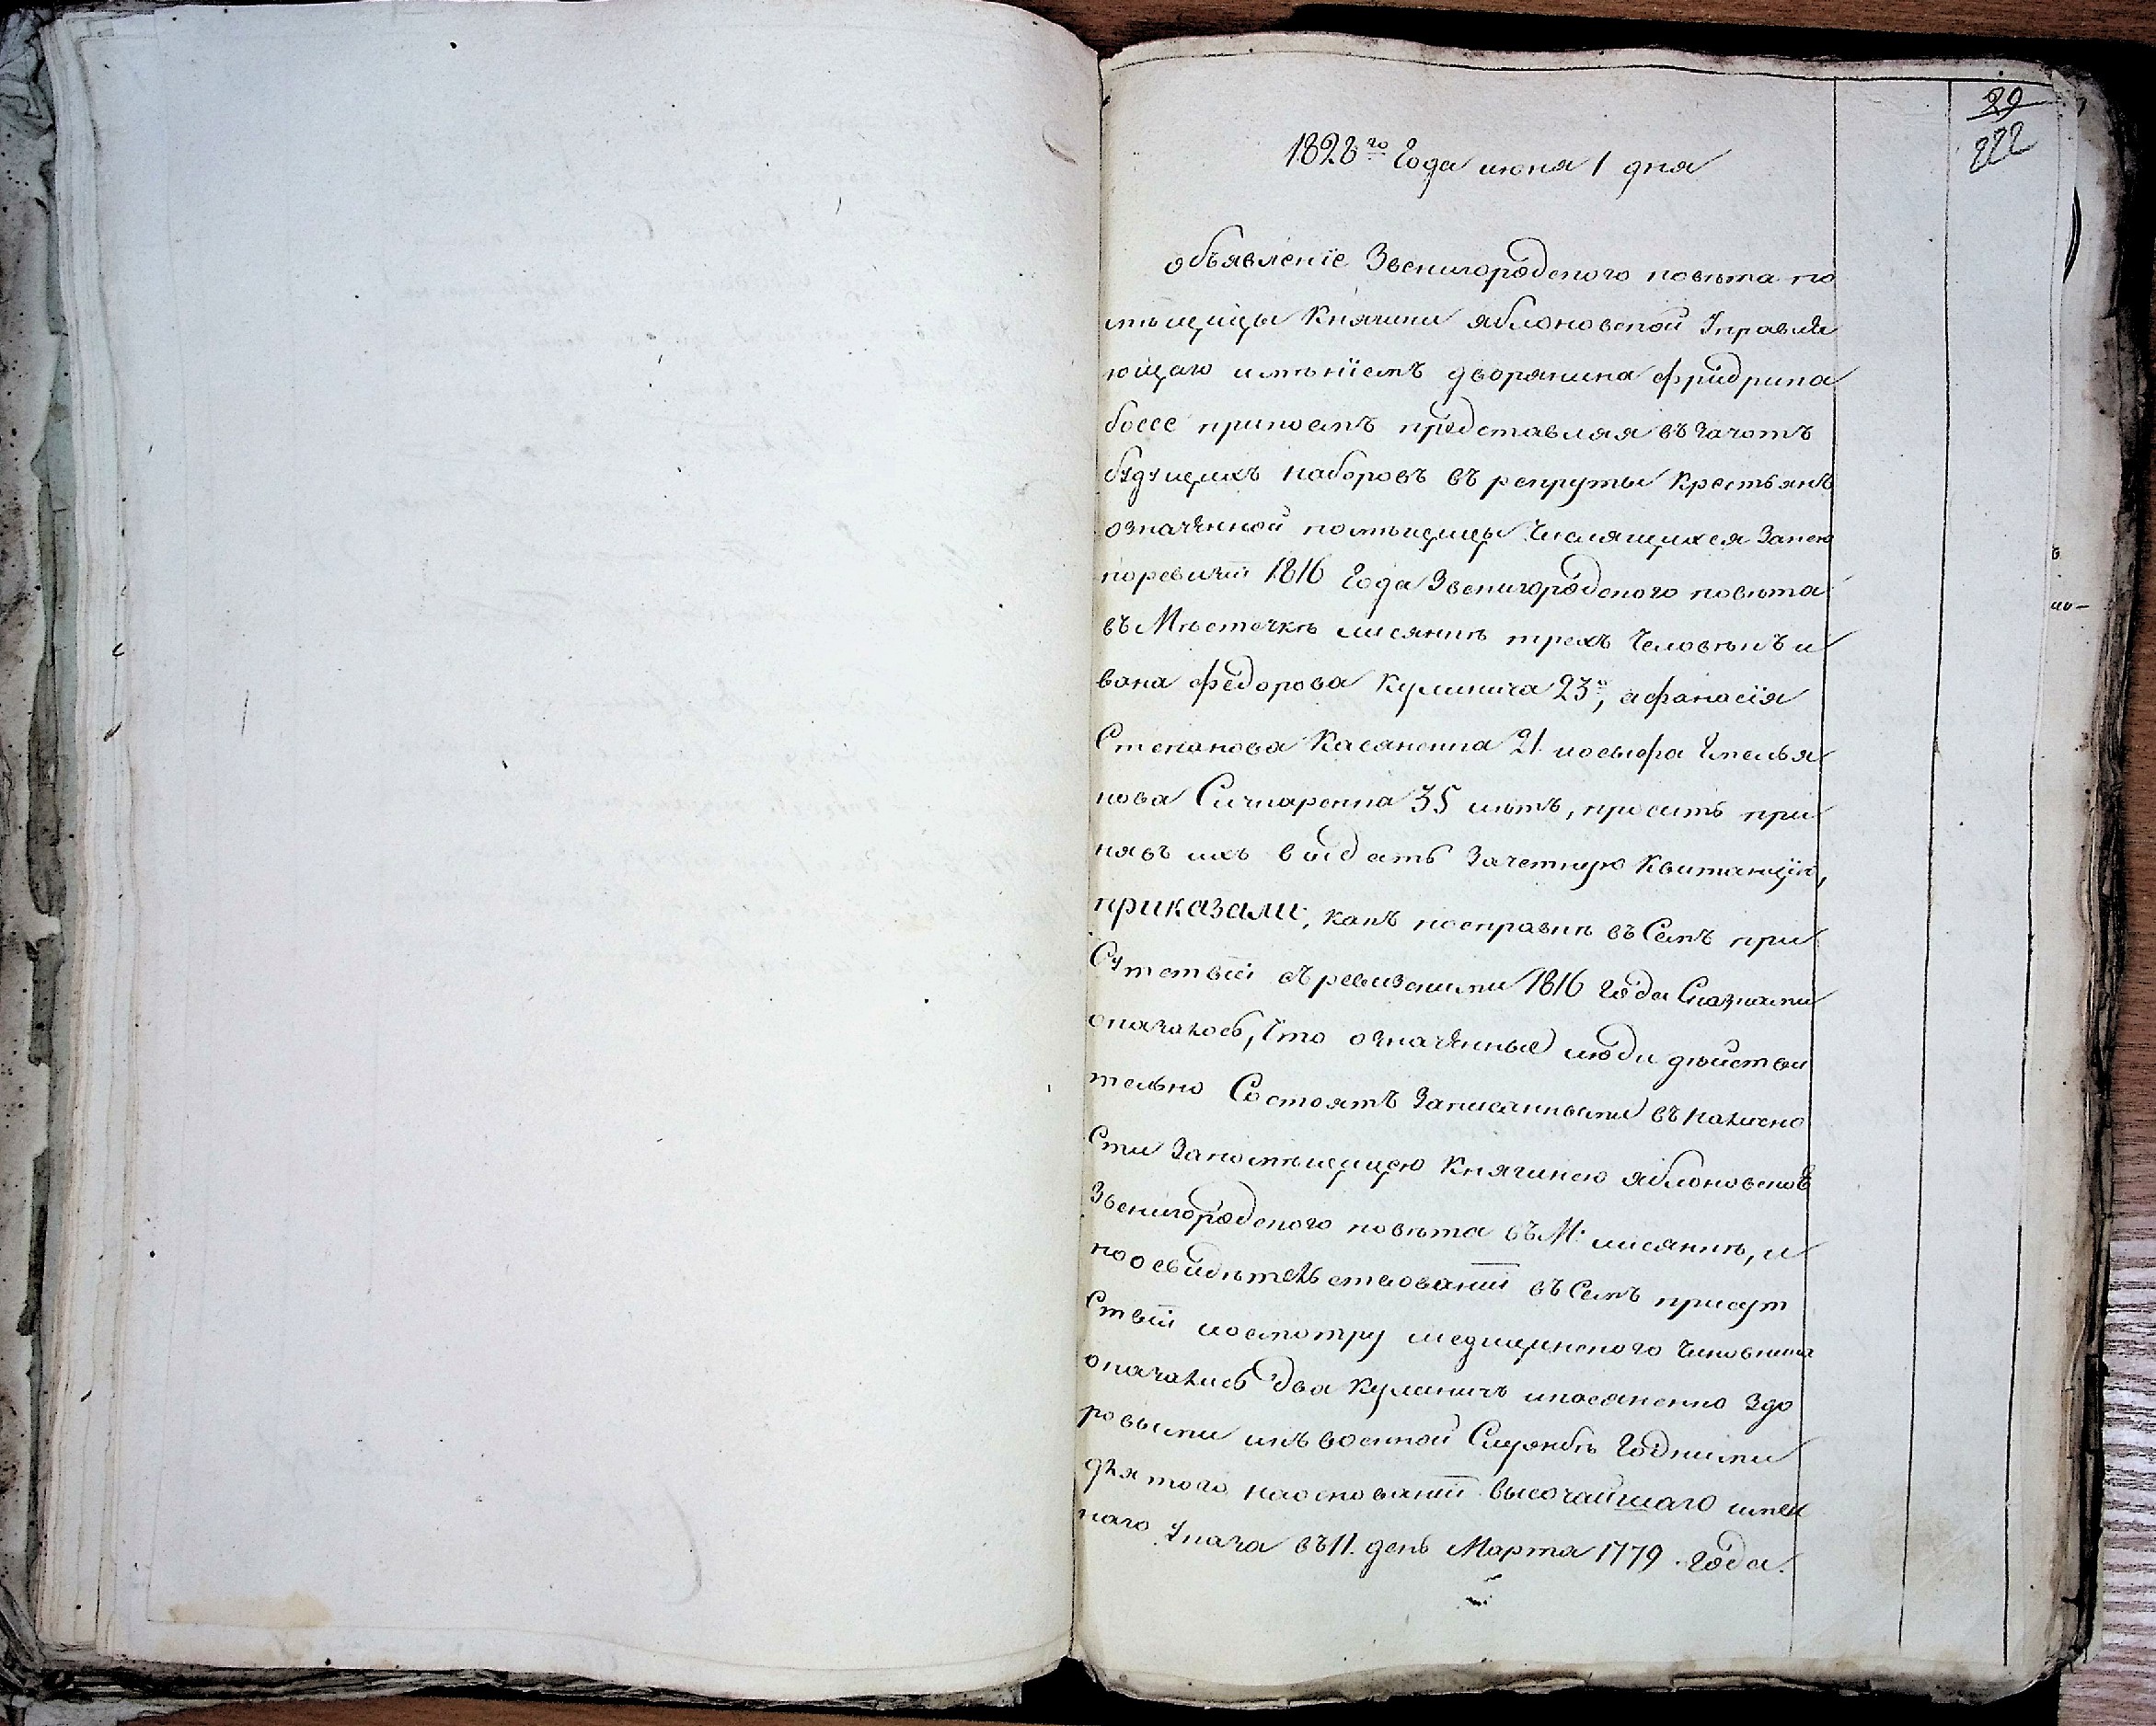 29
222
1828го Года июня 1 дня
объявленіе Звенигородского повѣта по
мѣщицы Княгини яблоновской Управля
ющаго имѣніемъ дворянина фридриха
боссе при коемъ представляя въ зачотъ
будущихъ наборовъ въ рекруты крестьянъ
означенной помѣщицы числящихся за нею
поревизіи 1816 Года Звенигородского повѣта
въ Мѣстечкѣ лисянкѣ трехъ человѣкъ и
вана федорова Кулинича 23х, афанасія
Степанова Касяненка 21 иосифа Емелья
нова Сичкаренка 35 лѣтъ, проситъ при
нявъ ихъ выдать зачетную Квитанцію,
приказали, какъ посправкѣ въ Семъ при
Сутствіи съ ревизскими 1816 года Сказками
оказалось, что означенные люди действи
тельно Состоятъ Записанными въ налично
Сти Запомѣщицею Княгинею яблоновской
Звенигородского повѣта въ М: лисянкѣ, и
по освидѣтельствованіи въ Семъ присут
Ствіи иосмотру медицинского чиновника
оказались два Кулиничъ икасяненко здо
ровыми икъ военной Службѣ Годними
для того наосновании высочайшаго имен
наго Указа въ 11. день Марта 1779 года.